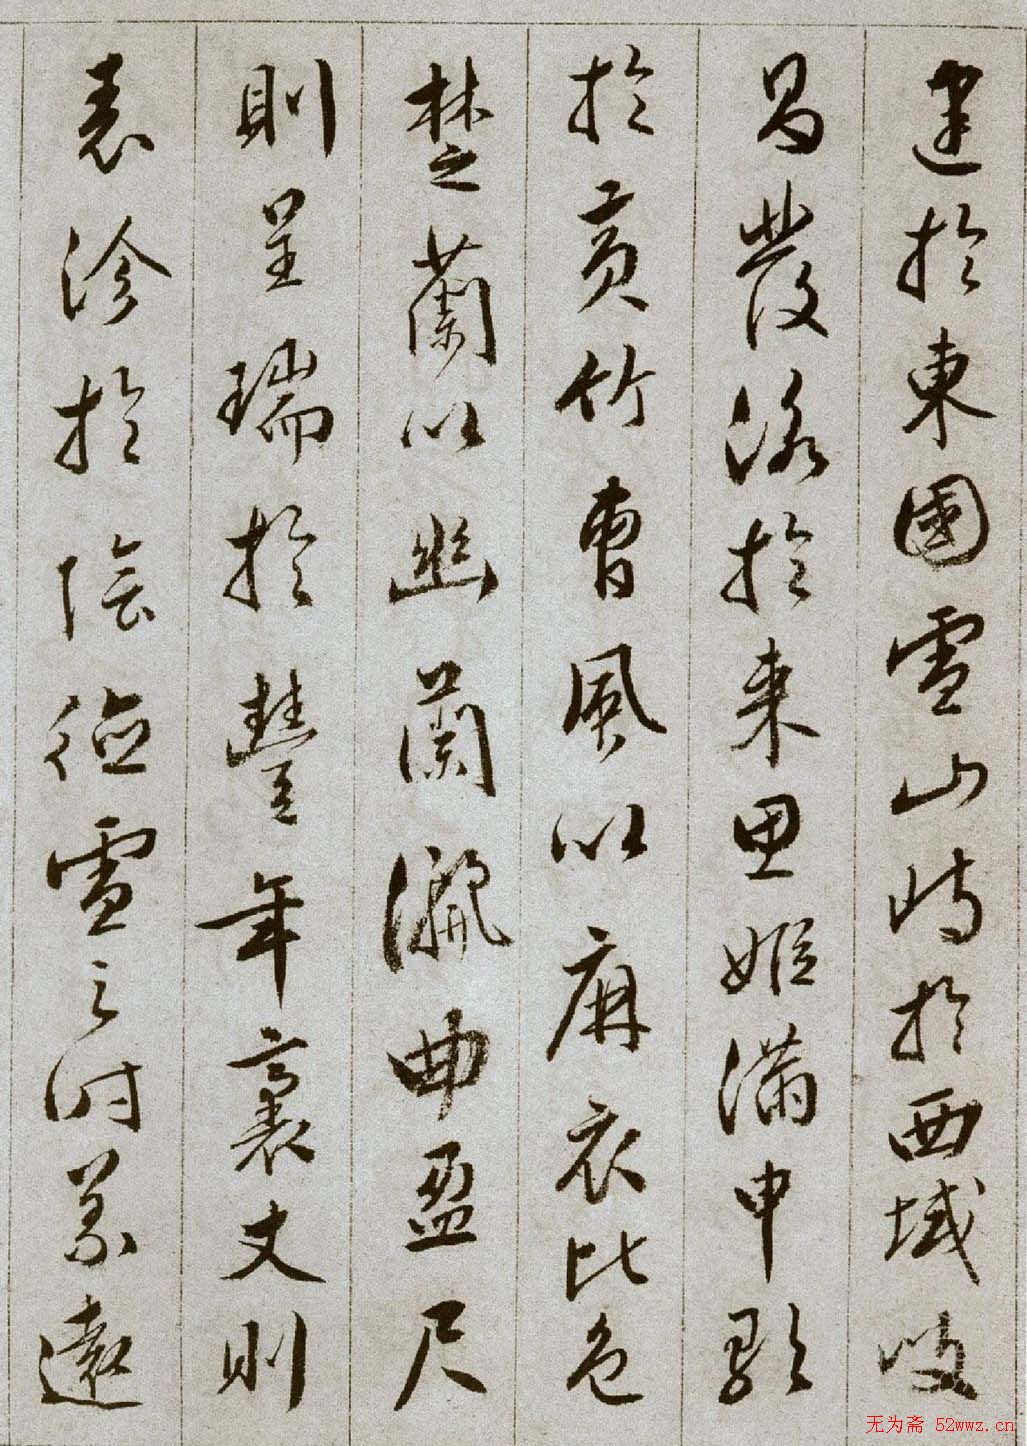 建於東國雪山峙於西域岐
昌發詠於來思姬滿申歌
於黃竹曹風以麻衣比色
楚蘭以幽蘭儷曲盈尺
則呈瑞於豐年袤丈則
表沴於陰德雪之時義遠
无为斋 52wwz.cn